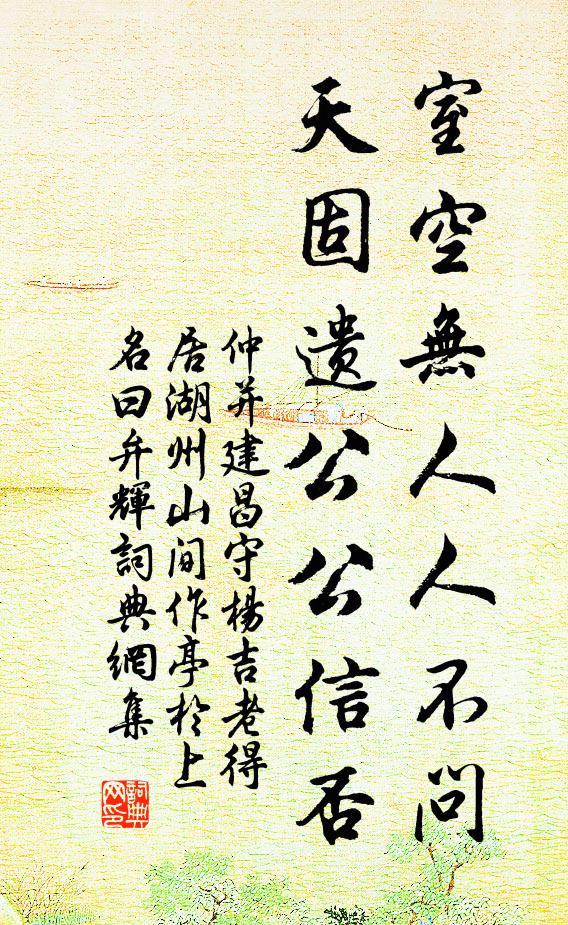 室空無人人不問
天固遺公公信否
仲并建昌守楊吉老得
居湖州山间作亭於上
名曰弁輝詞典網集
詞典
网印